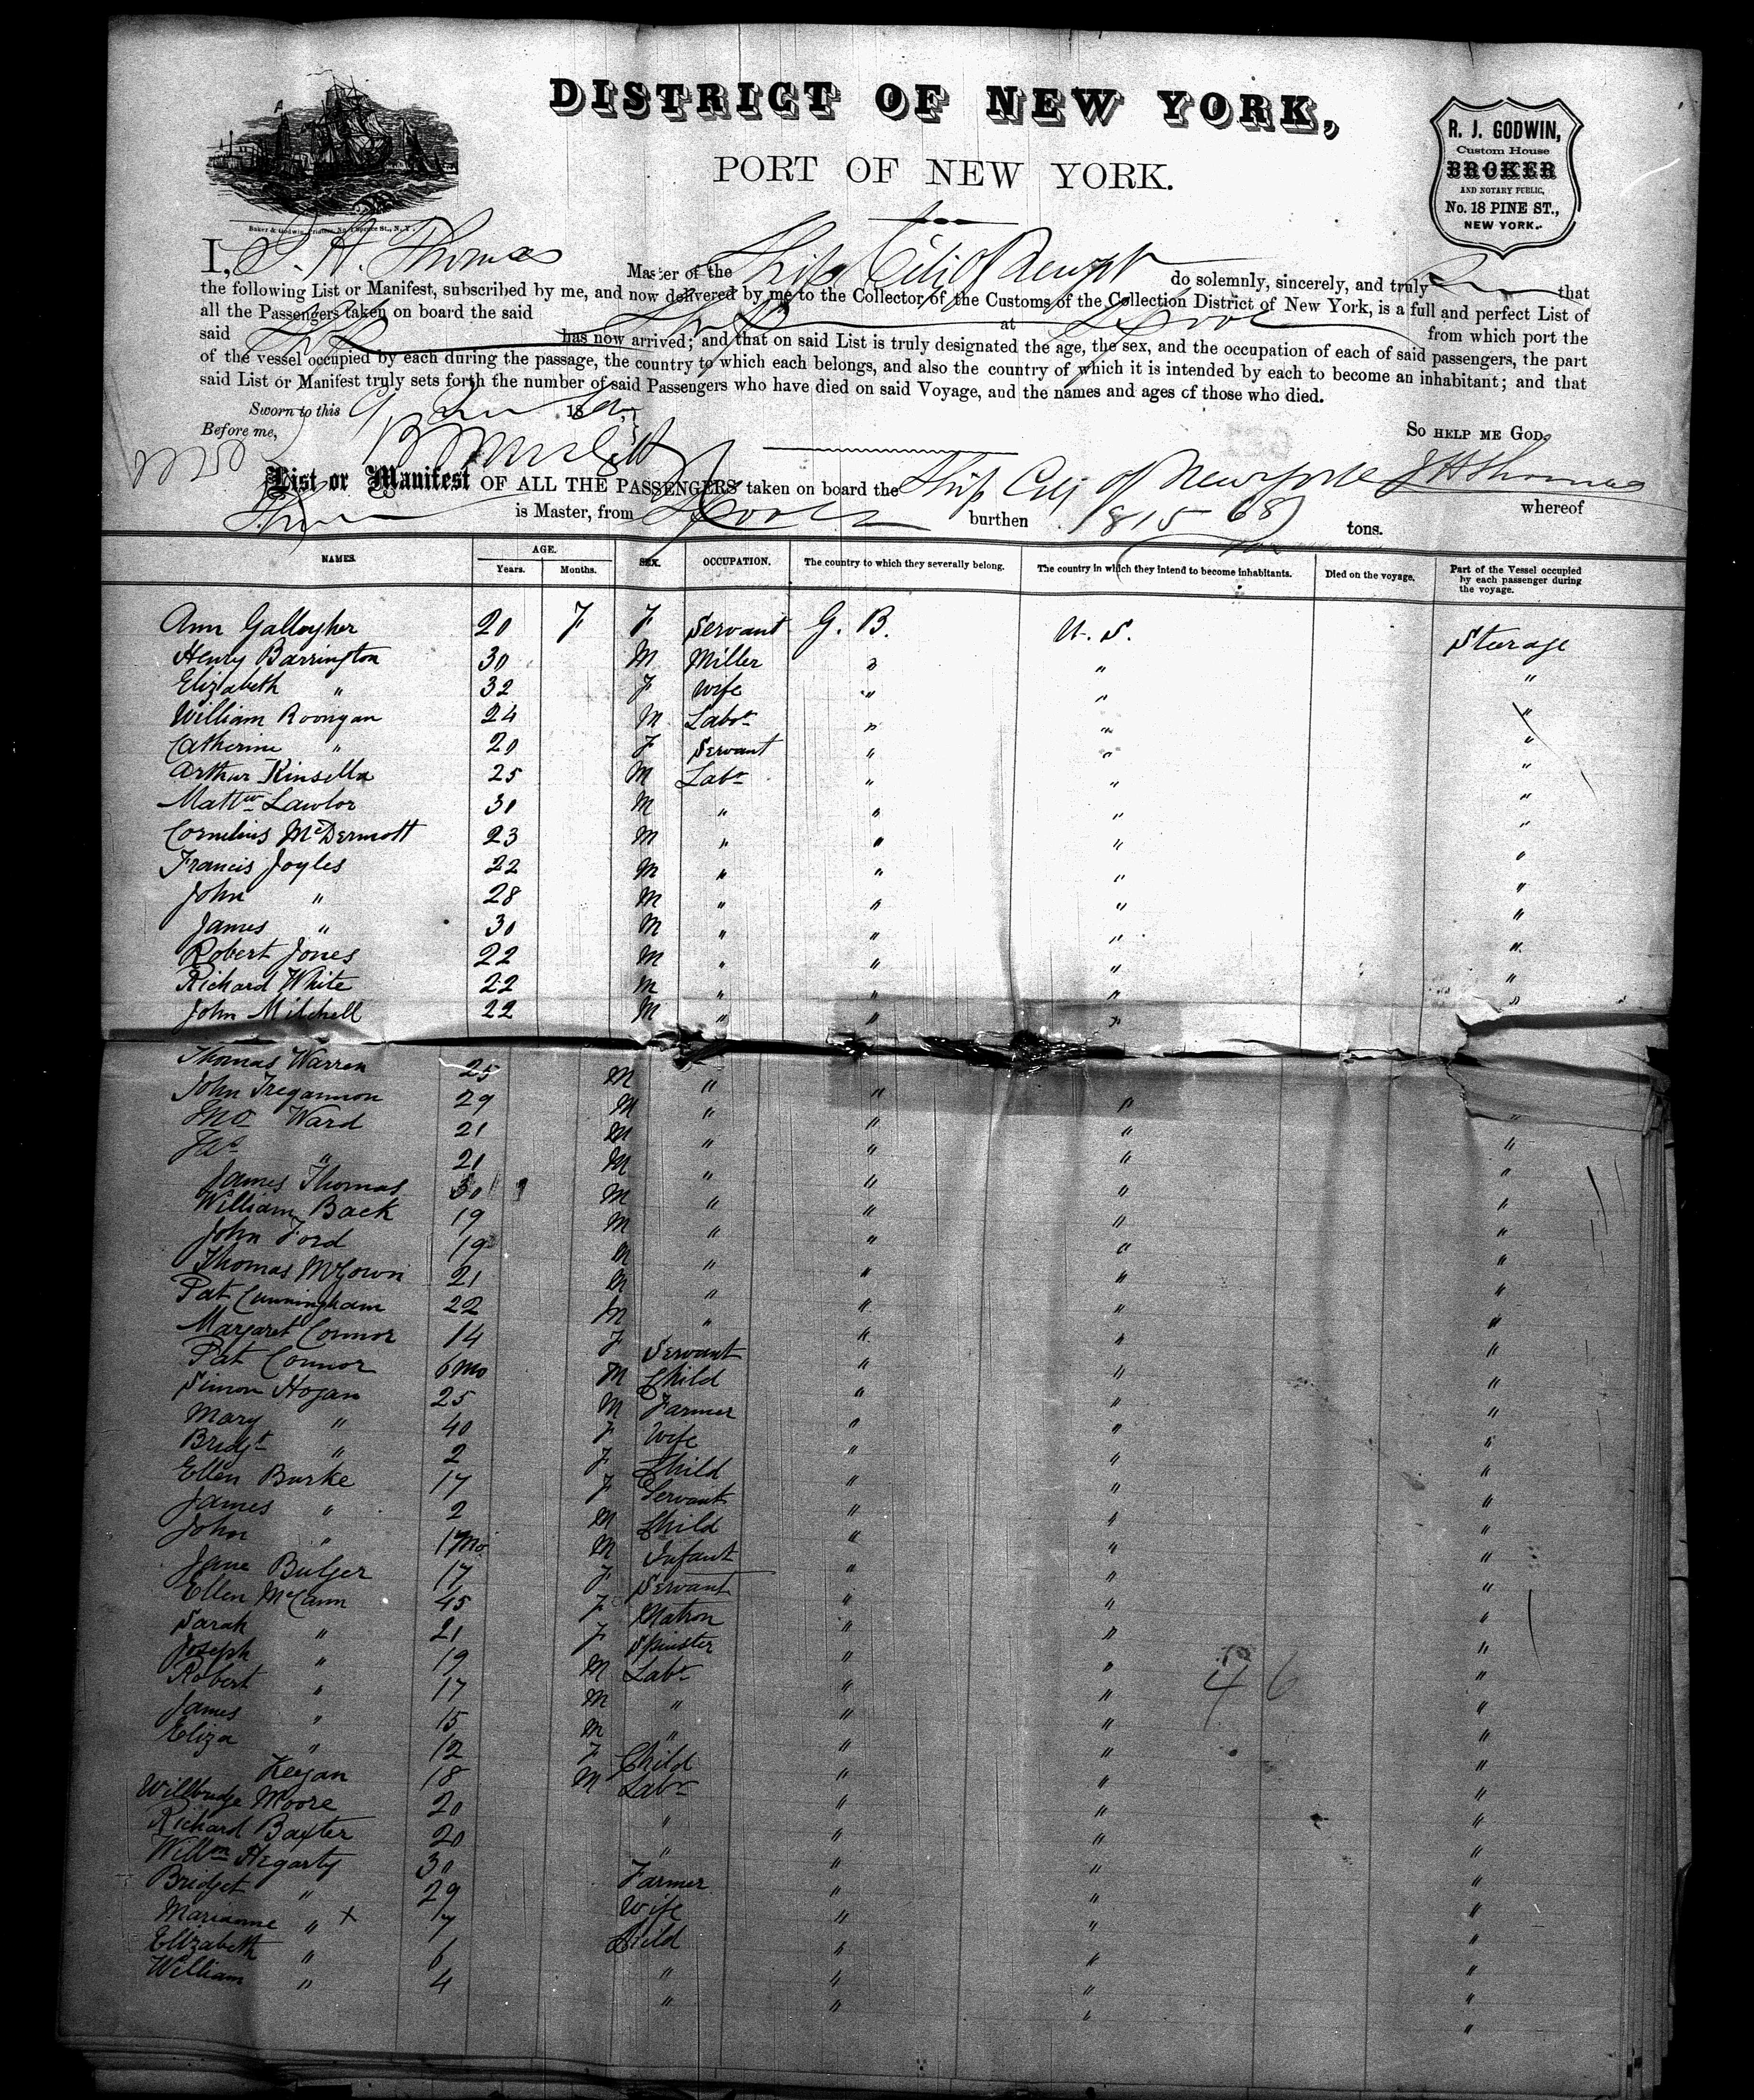 DISTRICT OF NEW YORK,
PORT OF NEW YORK.
R. J. GODWIN,
Custom House
BROKER
AND NOTARY PUBLIC,
No. 18 PINE ST.,
NEW YORK.
Baker & Godwin, Printers, No. 1 Spruce St., N. Y.
I, J. H. Thomas Master of the Ship City of New York do solemnly, sincerely, and truly that
the following List or Manifest, subscribed by me, and now delivered by me to the Collector of the Customs of the Collection District of New York, is a full and perfect List of
all the Passengers taken on board the said Ship at Lpool from which port the
said Ship has now arrived; and that on said List is truly designated the age, the sex, and the occupation of each of said passengers, the part
of the vessel occupied by each during the passage, the country to which each belongs, and also the country of which it is intended by each to become an inhabitant; and that
said List or Manifest truly sets forth the number of said Passengers who have died on said Voyage, and the names and ages of those who died.
Sworn to this 9 18
Before me, So HELP ME GOD,
List or Manifest OF ALL THE PASSENGERS taken on board the Ship City of New York J H Thomas whereof
is Master, from Lpool burthen 1815 68 tons.
NAMES. AGE. Years. Months. SEX. OCCUPATION. The country to which they severally belong. The country in which they intend to become inhabitants. Died on the voyage. Part of the Vessel occupied by each passenger during the voyage.
Ann Gallogher 20 F F Servant G. B. U. S. Sterage
Henry Barrington 30 M Miller " " "
Elizabeth " 32 F Wife " " "
William Roongan 24 M Labr " " "
Catherine " 20 F Servant " " "
Arthur Kinsella 25 M Labr " " "
Mattw Lawlor 30 M " " " "
Cornelius McDermott 23 M " " " "
Francis Joyles 22 M " " " "
John " 28 M " " " "
James " 30 M " " " "
Robert Jones 22 M " " " "
Richard White 22 M " " " "
John Mitchell 22 M " " "
Thomas Warren 25 M " " "
John Tregannon 29 M " " " "
Jno Ward 21 M " " " "
Jas " 21 M " " " "
James Thomas 30 M " " " "
William Back 19 M " " " "
John Ford 19 M " " " "
Thomas McGown 21 M " " " "
Pat Cunningham 22 M " " " "
Margaret Connor 14 F Servant " " "
Pat Connor 6 Mo M Child " " "
Simon Hogan 25 M Farmer " " "
Mary " 40 F Wife " " "
Bridgt " 2 F Child " " "
Ellen Burke 17 F Servant " " "
James " 2 M Child " " "
John " 1 Mo M Infant " " "
Jane Bulger 17 F Servant " " "
Ellen McCann 45 F Matron " " "
Sarah " 21 F Spinster " " "
Joseph " 19 M Labr " " "
Robert " 17 M " " " "
James " 15 M " " " "
Eliza " 12 F Child " " "
Keegan 18 M Labr " " "
Moore 20 " " " "
Richard Baxter 20 " " " "
Willm Hegarty 30 Farmer " " "
Bridget " 29 Wife " " "
Marianne " x 7 Child " " "
Elizabeth " 6 " " " "
William " 4 " " " "
46